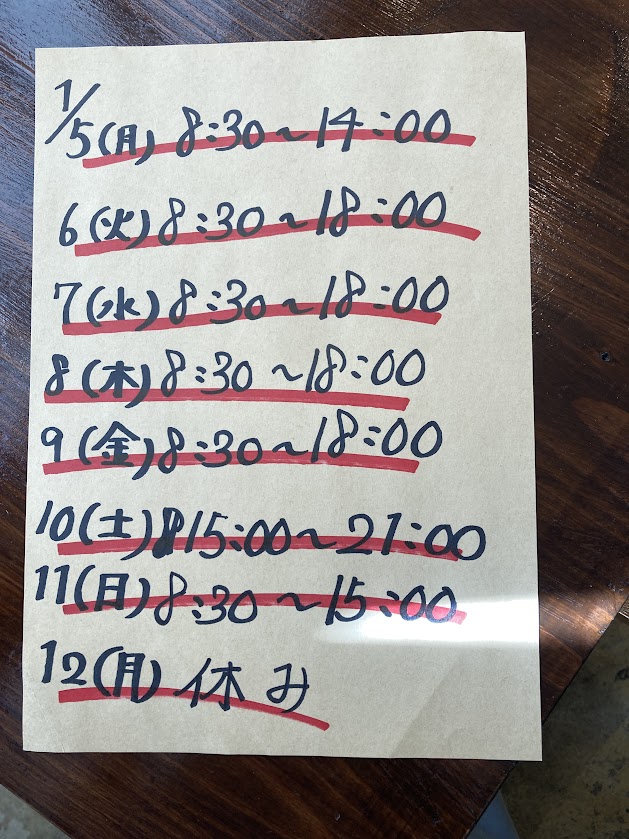 1/5(月) 8:30~14:00
6(火) 8:30~18:00
7(水) 8:30~18:00
8(木) 8:30~18:00
9(金) 8:30~18:00
10(土) 15:00~21:00
11(日) 8:30~15:00
12(月) 休み